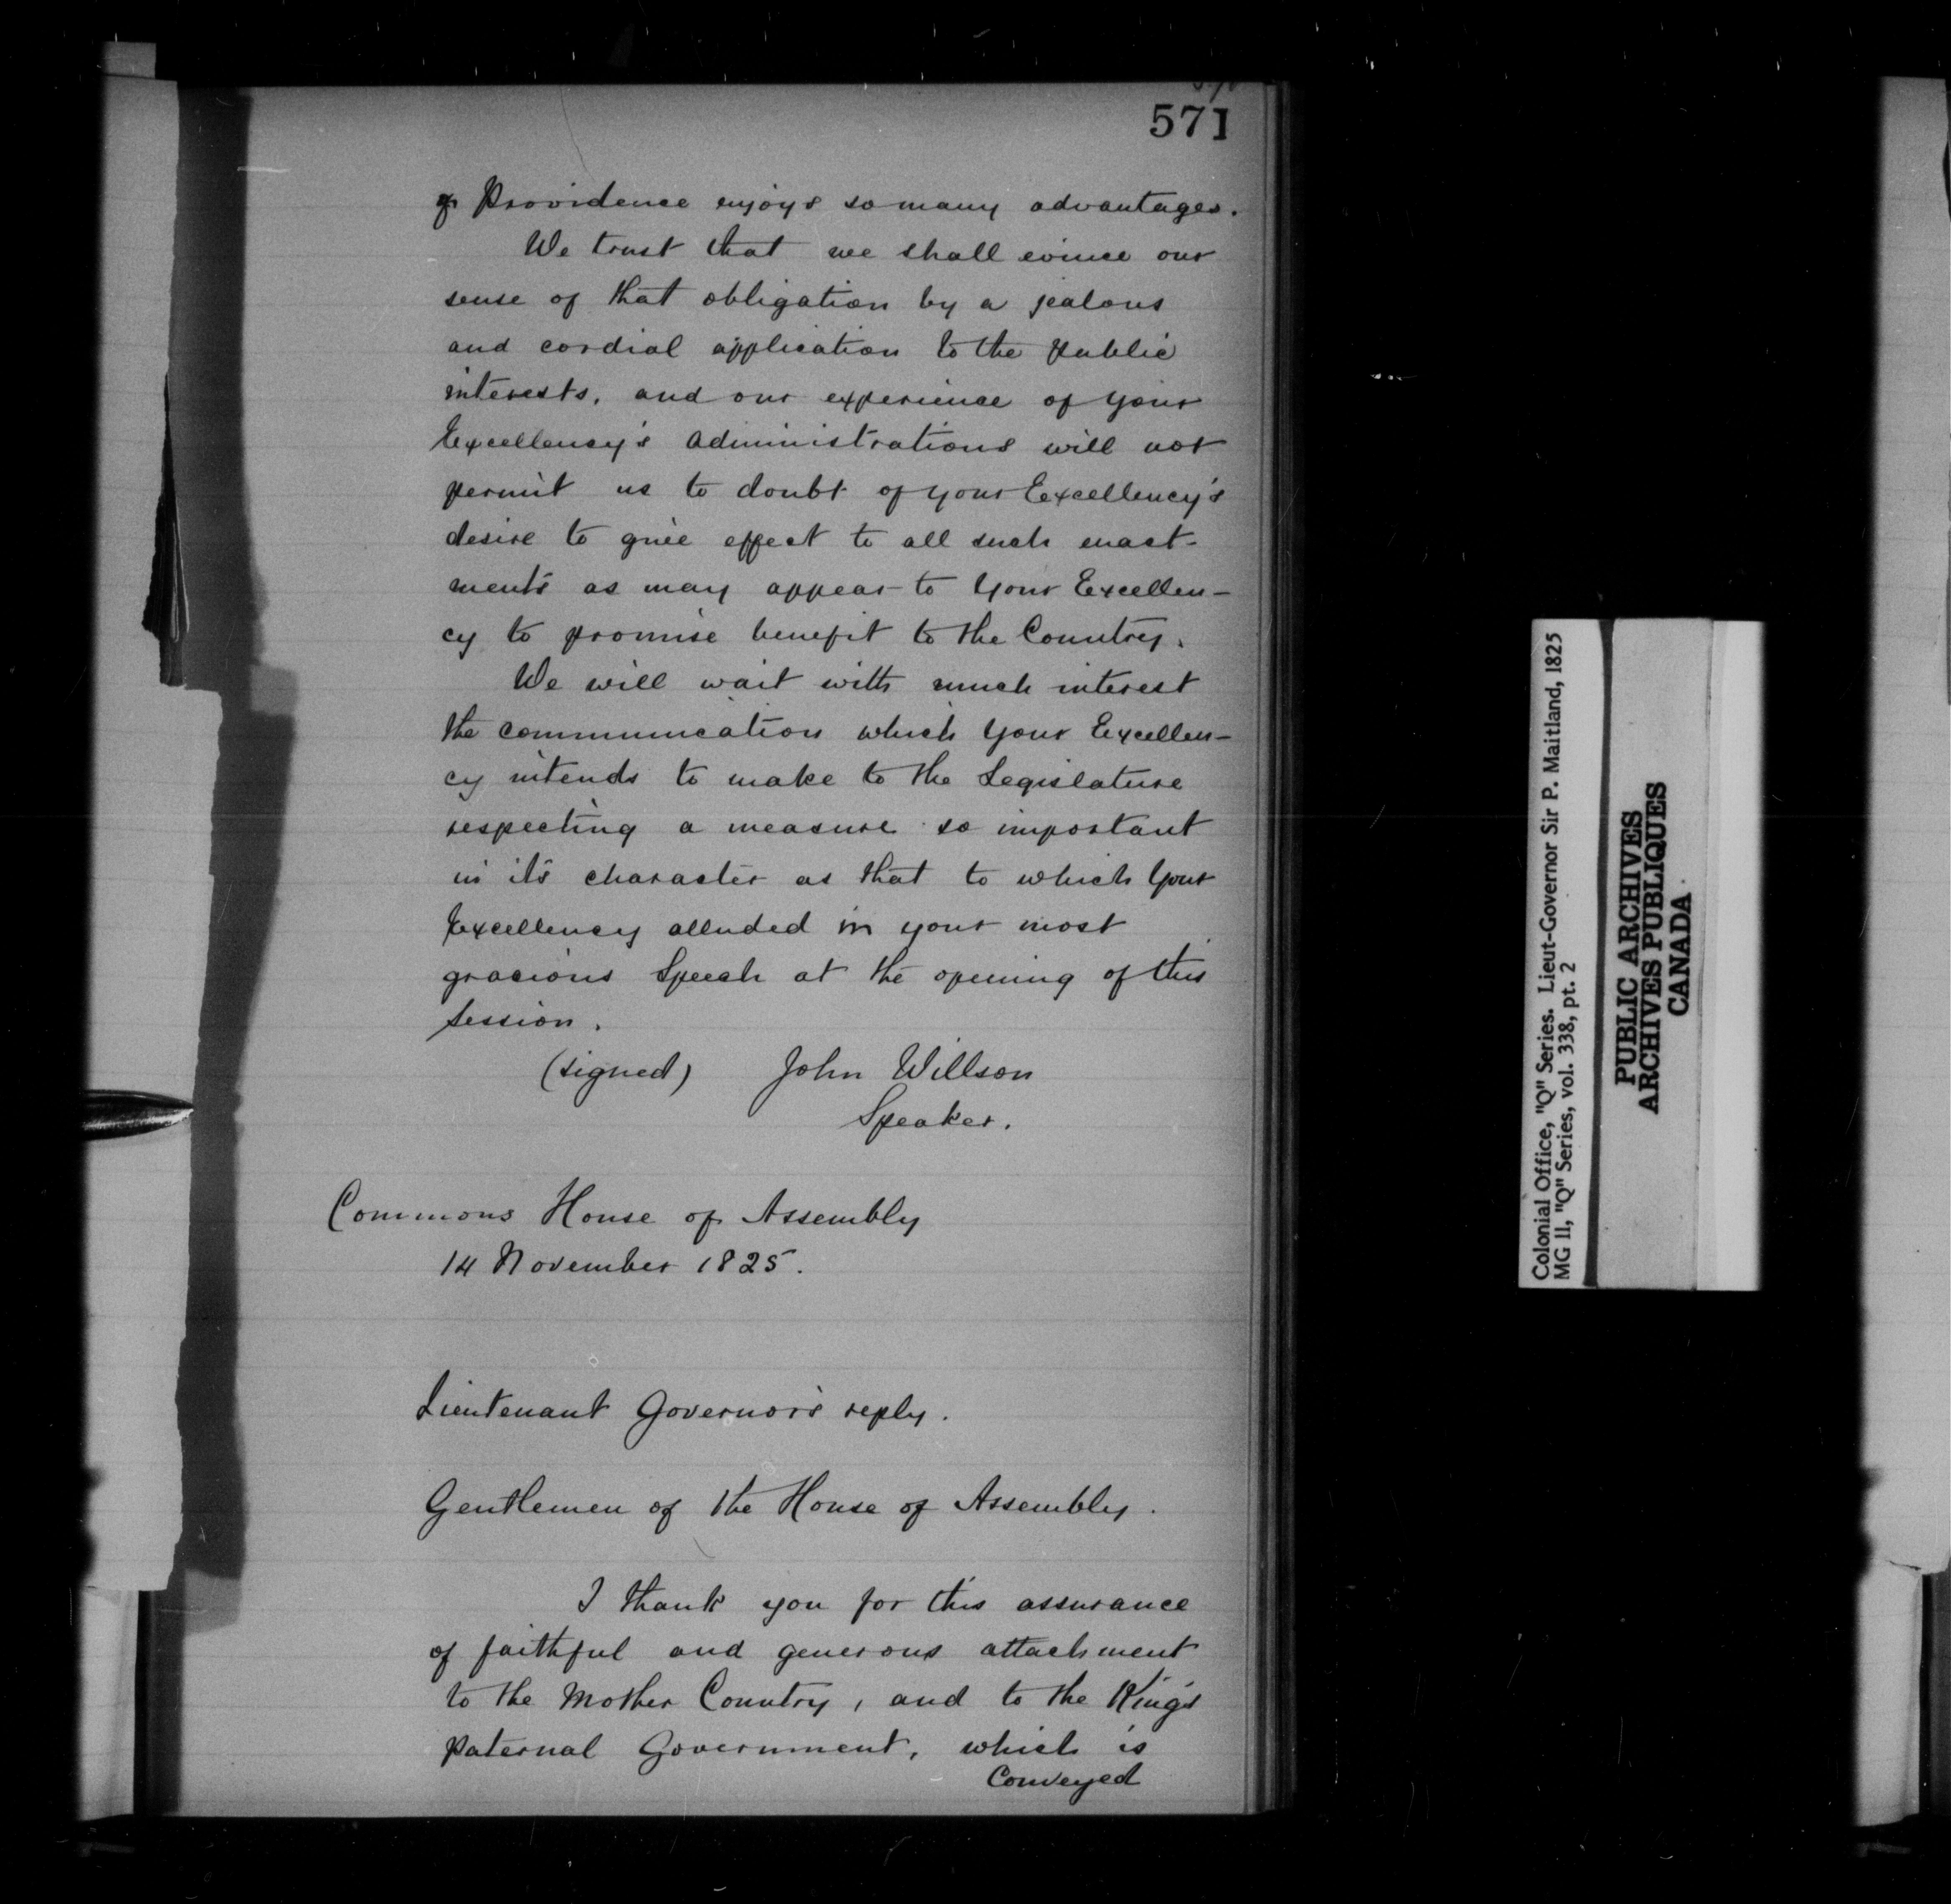 571
of Providence enjoys so many advantages.
We trust that we shall evince our
sense of that obligation by a jealous
and cordial application to the public
interests, and our experience of your
Excellency's administrations will not
permit us to doubt of your Excellency's
desire to give effect to all such enact-
ments as may appear to your Excellen-
cy to promise benefit to the Country.
We will wait with much interest
the communication which your Excellen-
cy intends to make to the Legislature
respecting a measure so important
in its character as that to which your
Excellency alluded in your most
gracious Speech at the opening of this
Session.
(signed) John Willson
Speaker.
Commons House of Assembly
14 November 1825.
Lieutenant Governor's reply.
Gentlemen of the House of Assembly.
I thank you for this assurance
of faithful and generous attachment
to the Mother Country, and to the King's
paternal Government, which is
Conveyed
Colonial Office, "Q" Series. Lieut-Governor Sir P. Maitland, 1825
MG 11, "Q" Series, vol. 338, pt. 2
PUBLIC ARCHIVES
ARCHIVES PUBLIQUES
CANADA